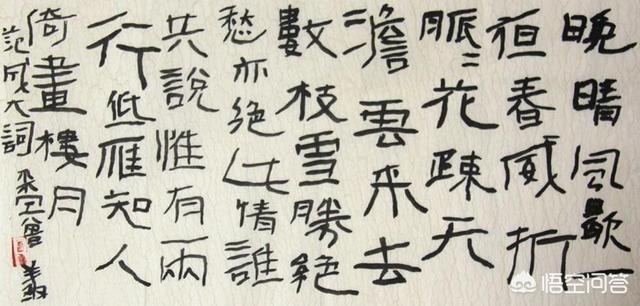 晚晴風歇一
亱春威折
脈〻花疎天
澹雲來去
數枝雪勝絕
愁亦絕此情誰
共說惟有兩
行低雁知人
倚畫樓月
范成大詞
悟空问答